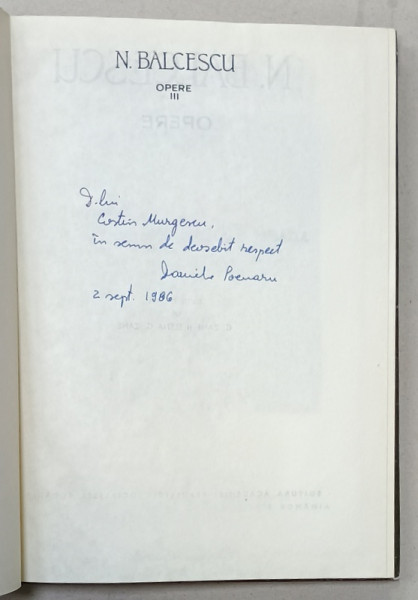 N. BALCESCU
OPERE
III
D-lui
Costin Murgescu,
în semn de deosebit respect
Daniela Poenaru
2 sept. 1986